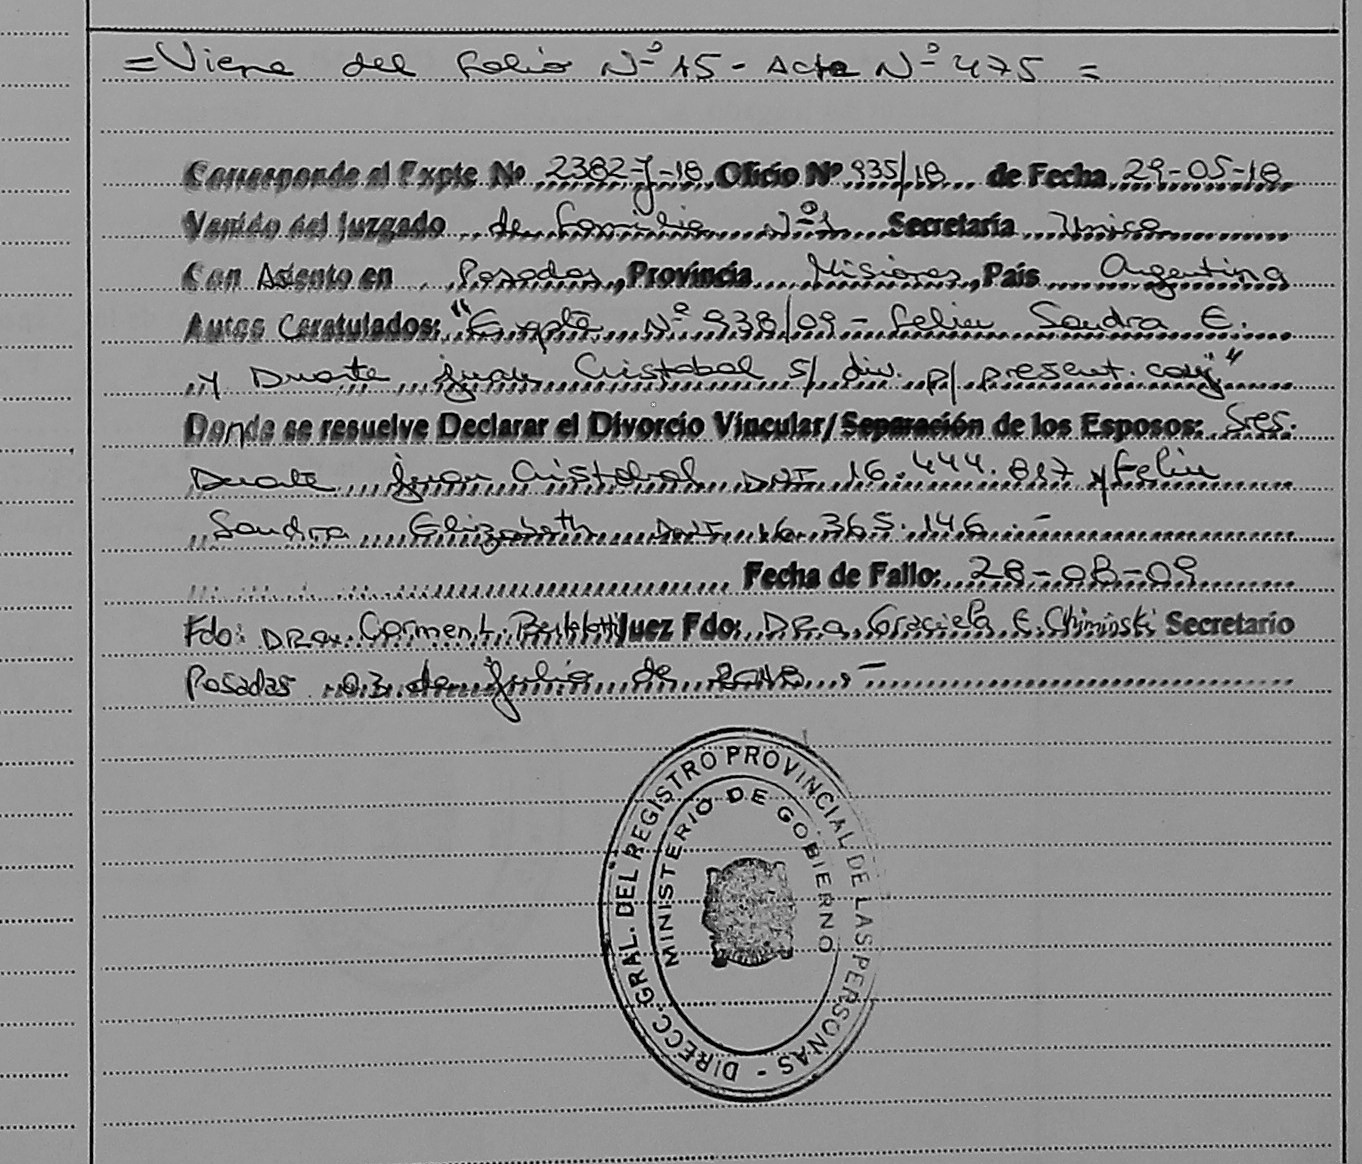 = Viene del folio Nº 15 - Acta Nº 475 =
Corresponde al Expte Nº 2382-J-18 Oficio Nº 935/18 de Fecha 29-05-18
Venido del Juzgado de Familia Nº 1 Secretaría Unica
Con Asiento en Posadas, Provincia Misiones, País Argentina
Autos Caratulados: "Expte Nº 938/09 - Feliu Sandra E.
y Duarte Juan Cristobal s/ div. p/ present. conj"
Donde se resuelve Declarar el Divorcio Vincular/Separación de los Esposos: Sres.
Duarte Juan Cristobal DNI 16.444.817 y Feliu
Sandra Elizabeth DNI 16.365.146.-
Fecha de Fallo: 28-08-09
Fdo: DRA. Carmen L. Juez Fdo: DRA. Graciela E. Chiminski Secretario
Posadas 03 de Julio de 2018.-
DIRECC. GRAL. DEL REGISTRO PROVINCIAL DE LAS PERSONAS -
MINISTERIO DE GOBIERNO